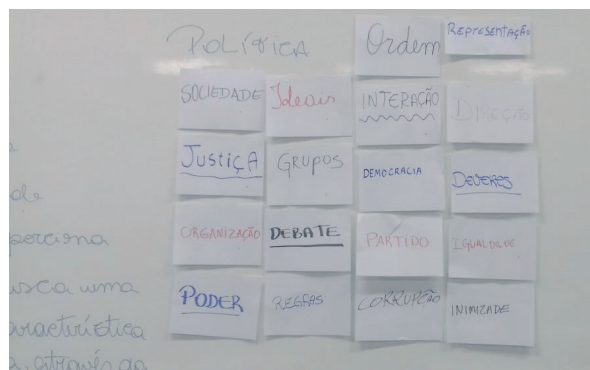 POLÍTICA
Ordem
REPRESENTAÇÃO
SOCIEDADE
Ideais
INTERAÇÃO
DIREÇÃO
JUSTIÇA
GRUPOS
DEMOCRACIA
DEVERES
ORGANIZAÇÃO
DEBATE
PARTIDO
IGUALDADE
PODER
REGRAS
CORRUPÇÃO
INIMIZADE
de
porciona
usca uma
aracterística
a, através da